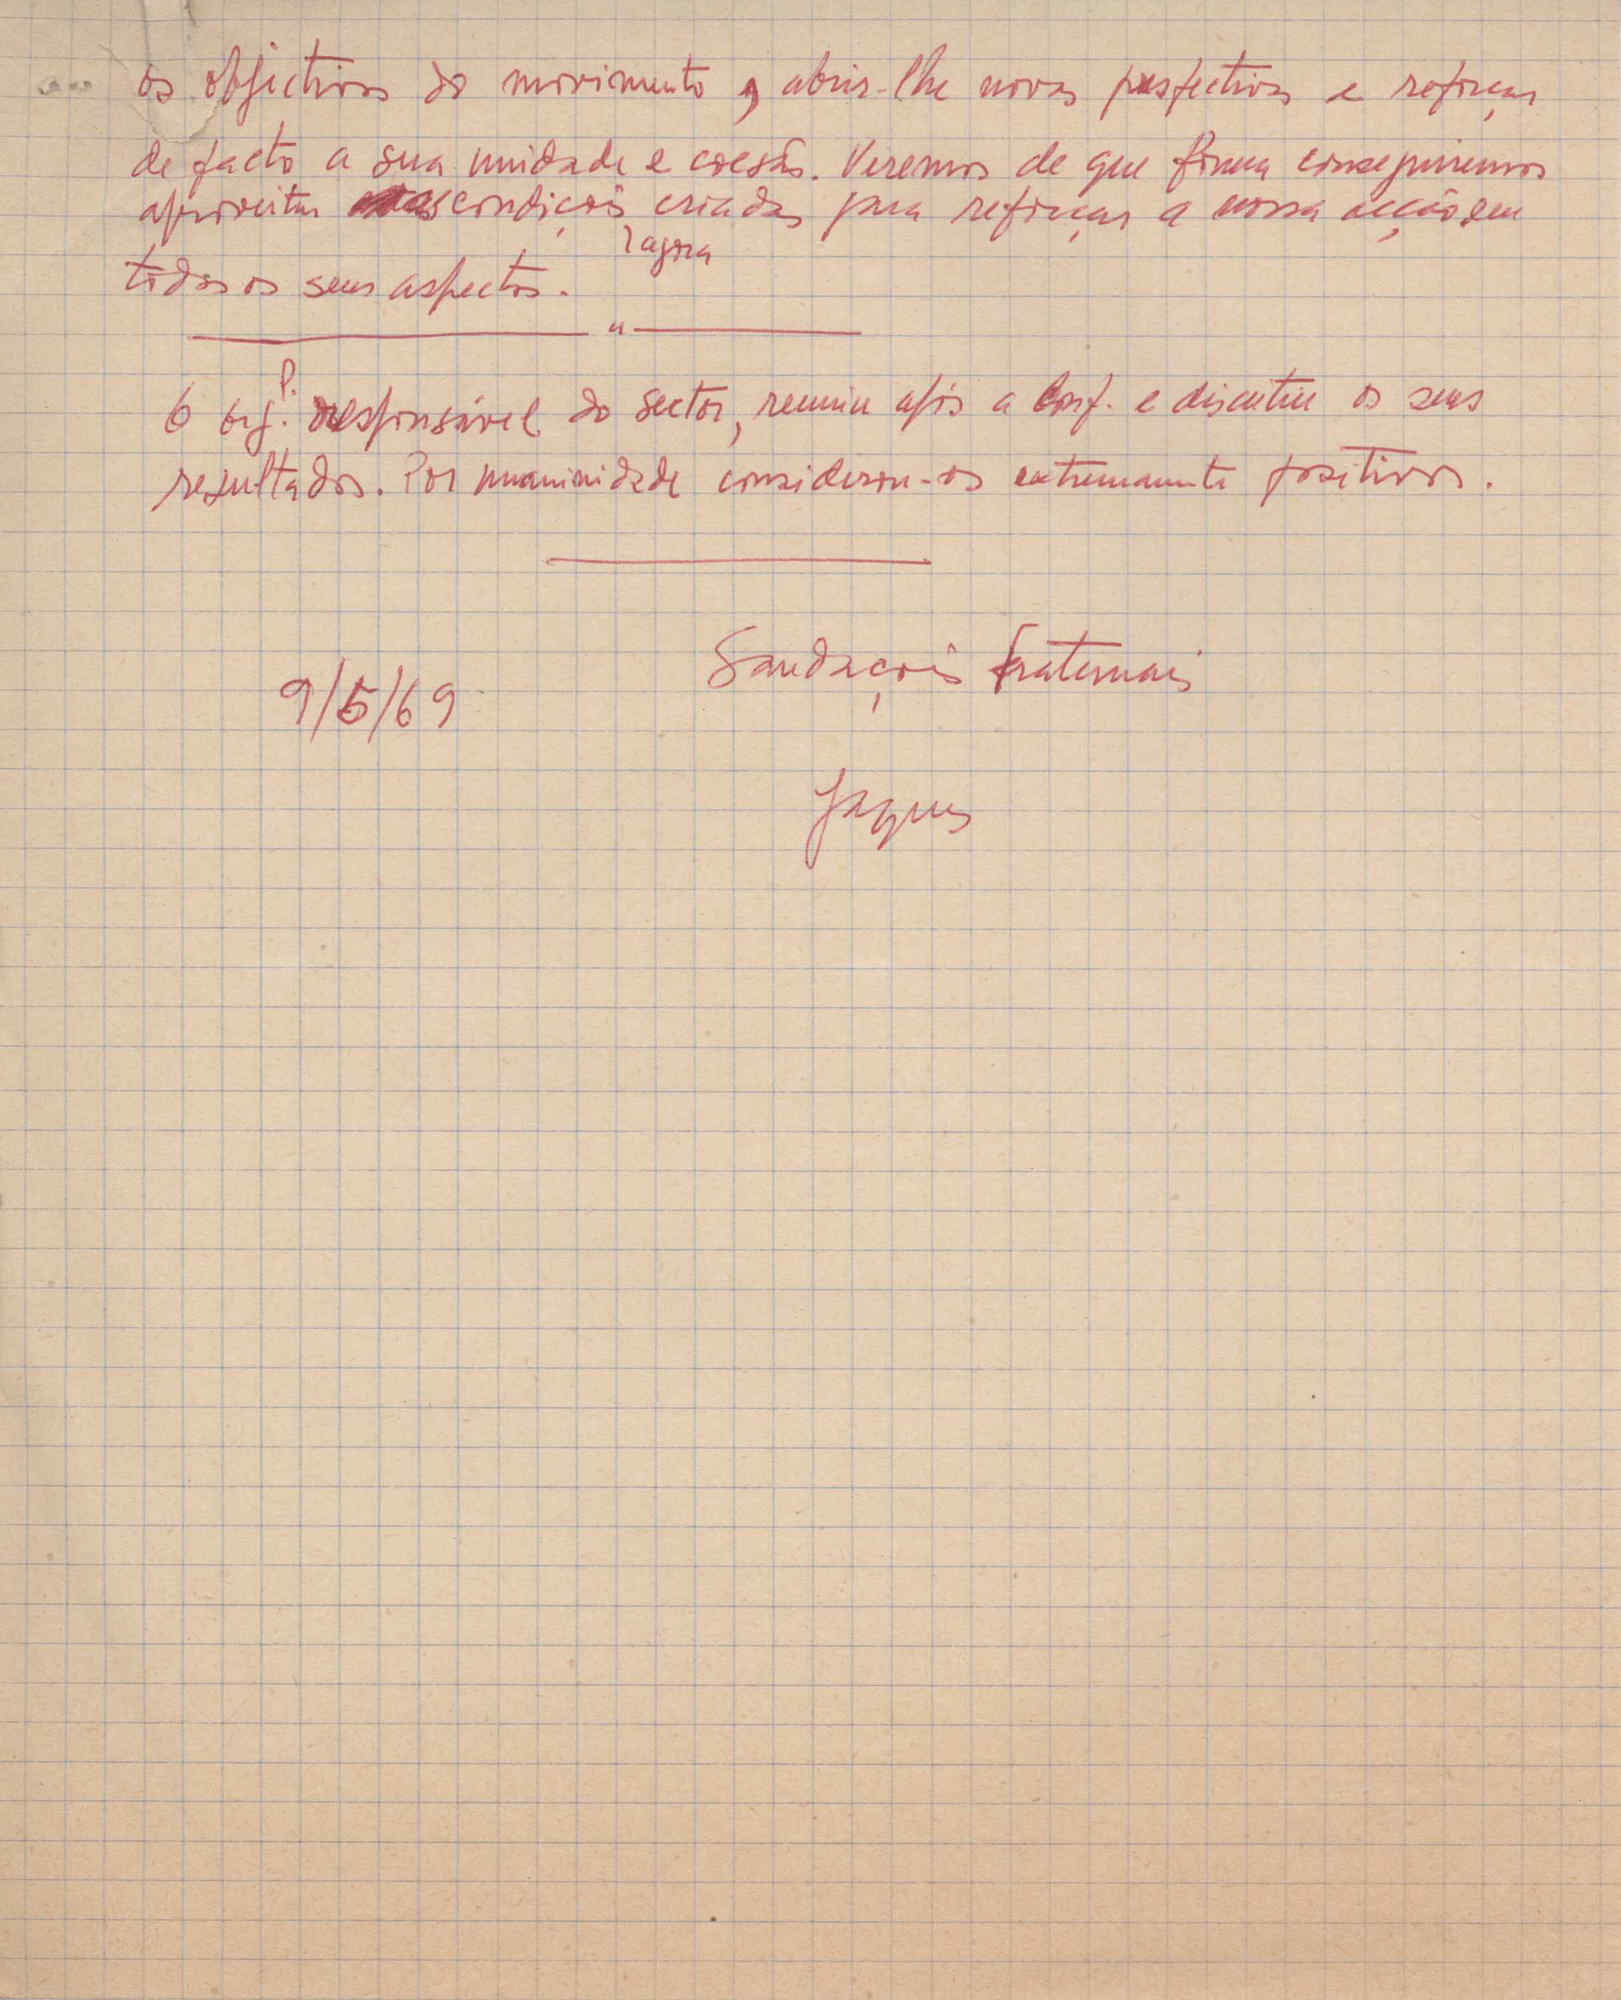 os objectivos do movimento, abrir-lhe novas perspectivas e reforçar
de facto a sua unidade e coesão. Veremos de que forma conseguiremos
aproveitar as condições criadas para reforçar a nossa acção em
agora
todos os seus aspectos.
O org. P. responsável do sector, reuniu após a Conf. e discutiu os seus
resultados. Por unanimidade considerou-os extremamente positivos.
Saudações fraternais
9/5/69
Jaques